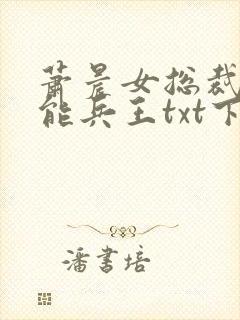 萧晨女总裁
能兵王txt下
潘书培